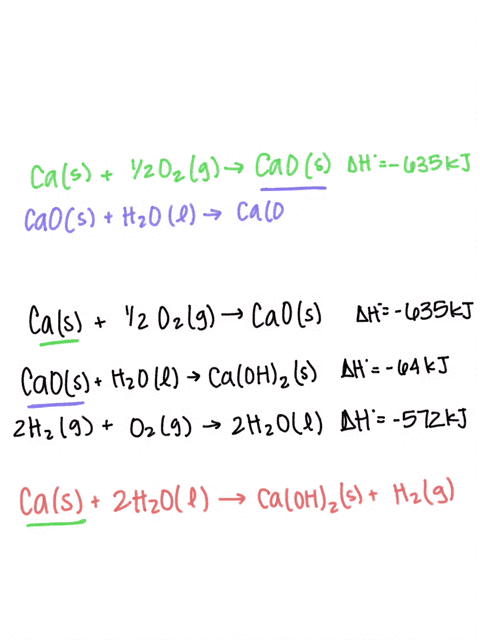 Ca(s) + 1/2O₂(g) → CaO(s) ΔH°=-635kJ
CaO(s) + H₂O(l) → Ca(O
Ca(s) + 1/2 O₂(g) → CaO(s) ΔH°=-635kJ
CaO(s) + H₂O(l) → Ca(OH)₂(s) ΔH°=-64kJ
2H₂(g) + O₂(g) → 2H₂O(l) ΔH°=-572kJ
Ca(s) + 2H₂O(l) → Ca(OH)₂(s) + H₂(g)